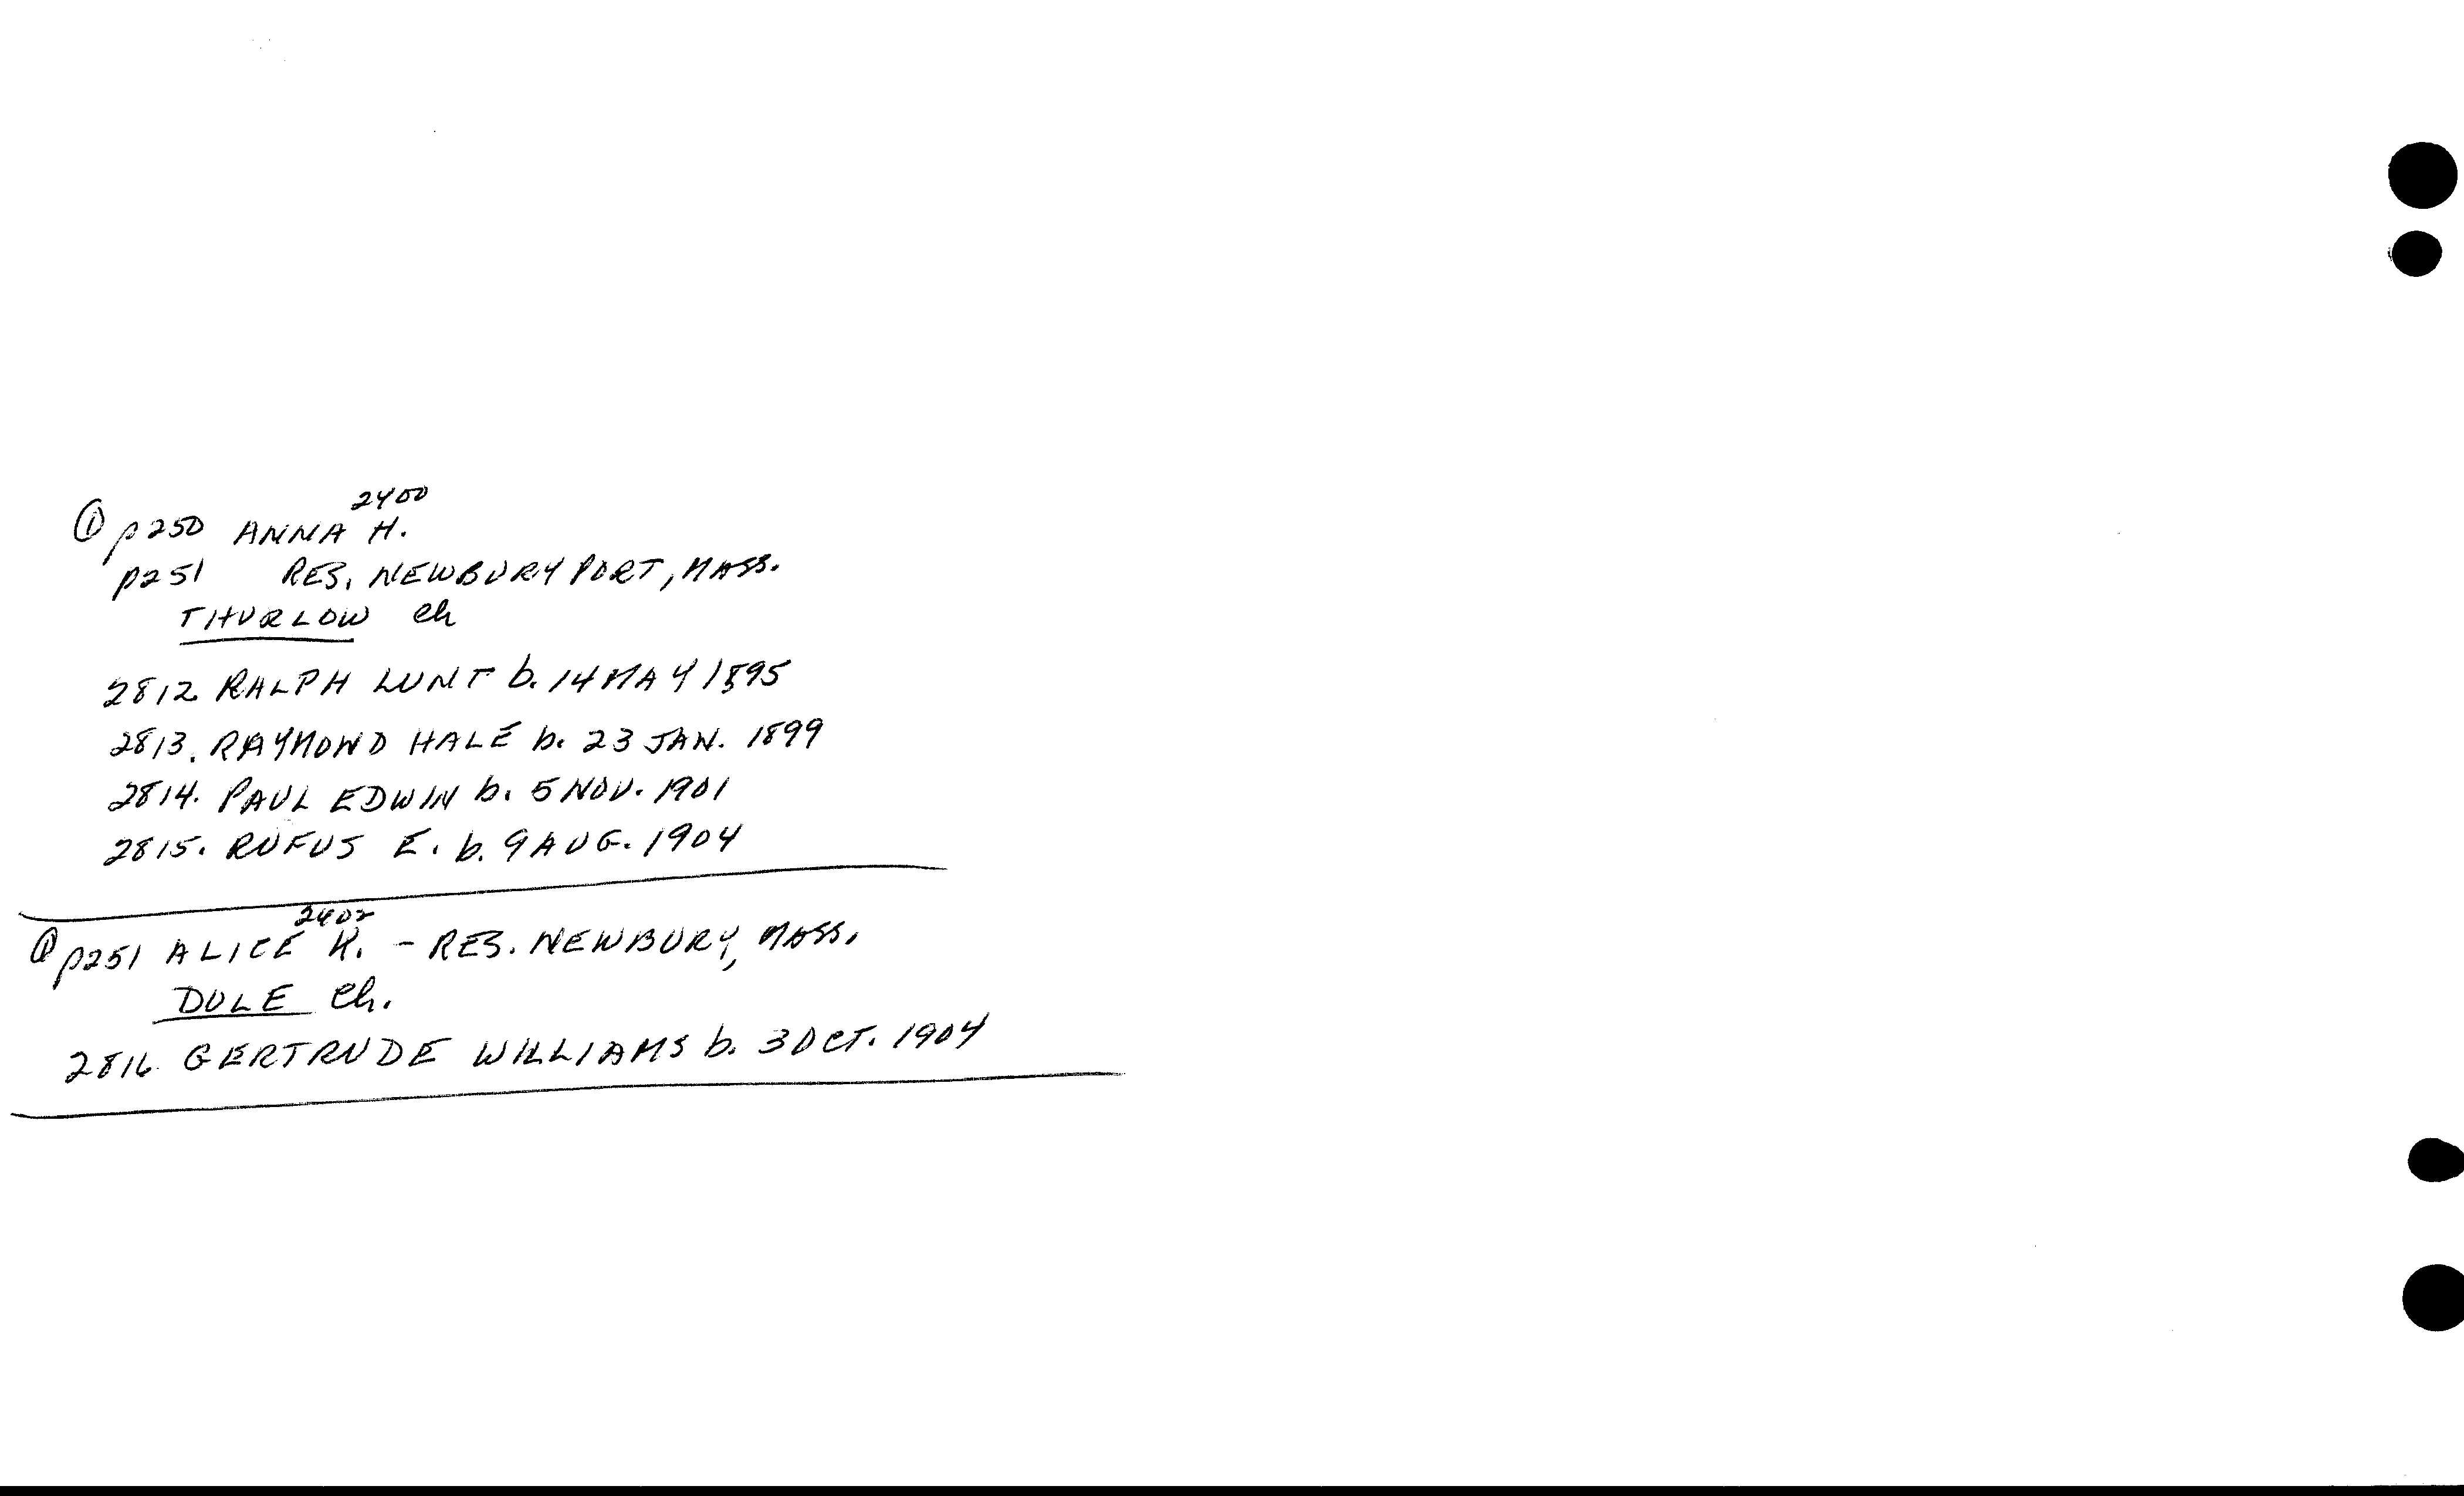 ① p250 ANNA H. 2400
p251 RES. NEWBURYPORT, MASS.
THURLOW Ch
2812 RALPH LUNT b. 14 MAY 1895
2813. RAYMOND HALE b. 23 JAN. 1899
2814. PAUL EDWIN b. 5 NOV. 1901
2815. RUFUS E. b. 9 AUG. 1904
① p251 ALICE 2402 - RES. NEWBURY, MASS.
DOLE Ch.
2816. GERTRUDE WILLIAMS b. 3 OCT. 1904